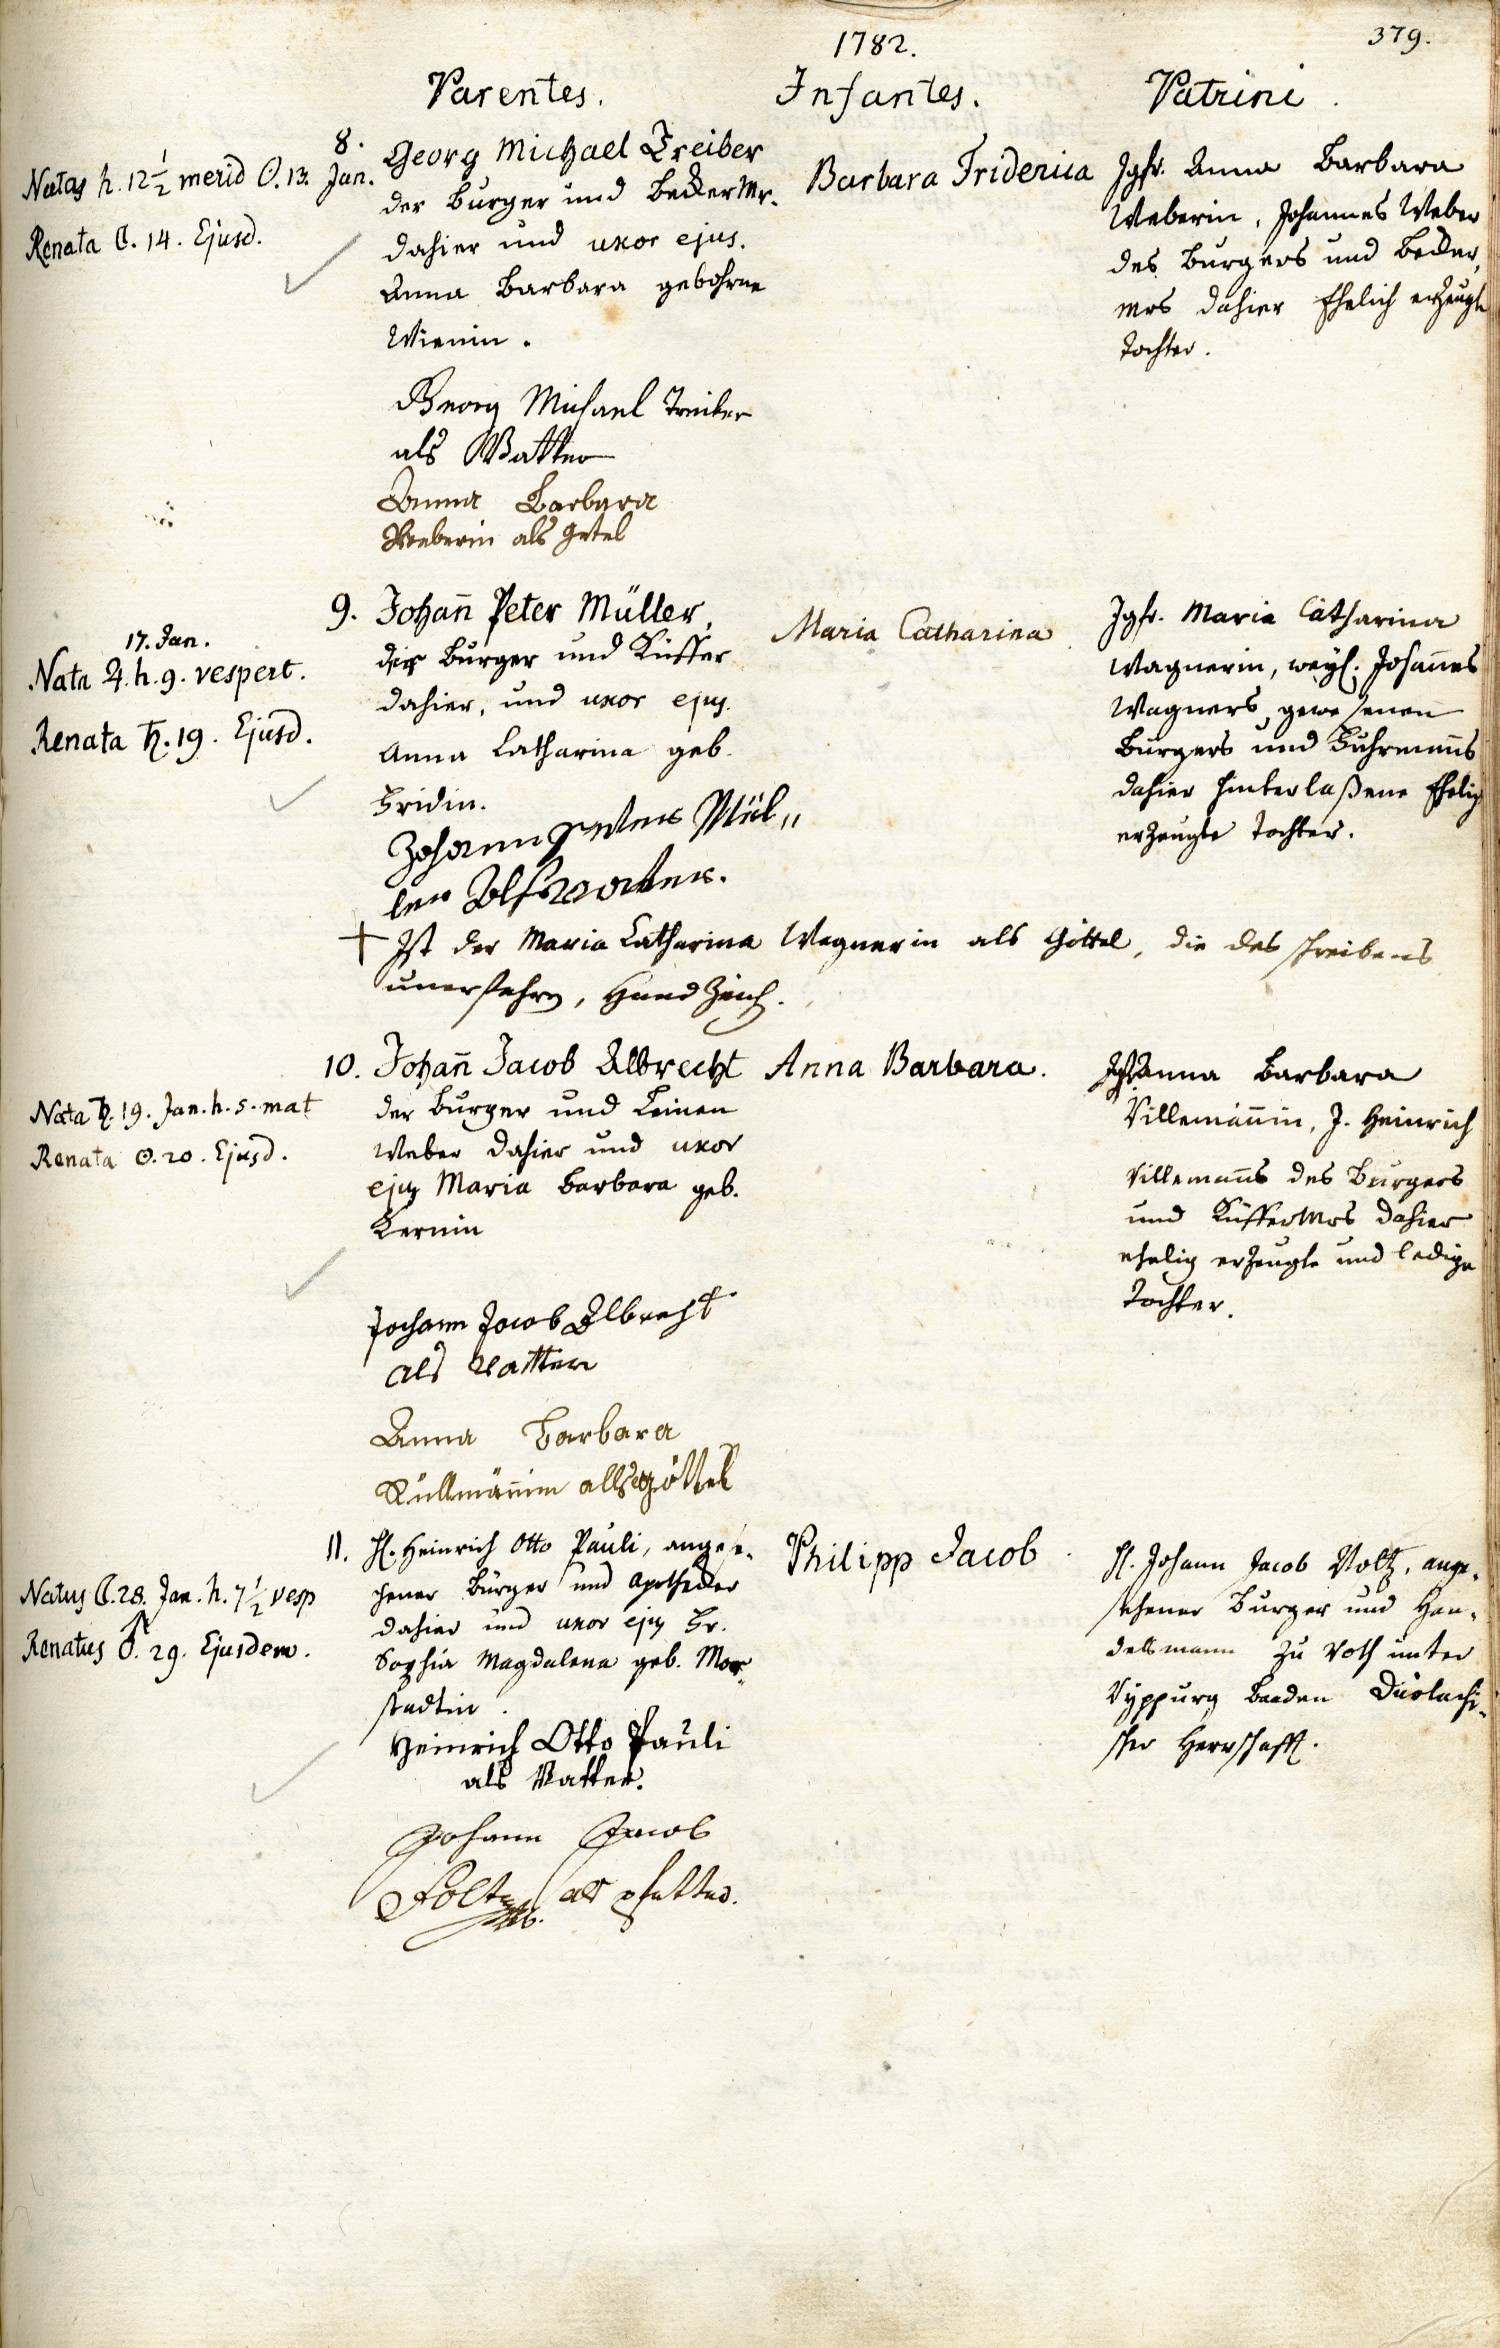 1782.
379.
Parentes.
Infantes.
Patrini.
8.
Natas h. 12 1/2 merid ☉. 13. Jan.
Renata ☾. 14. Ejusd.
Georg Michael Treiber
der Burger und Becker Mr.
dahier und uxor ejus.
Anna Barbara gebohrne
Barbara Friderica
Jgfr. Anna Barbara
Weberin, Johannes Weber
des Burgers und Becker
Mrs dahier Ehelich erzeugte
Tochter.
Georg Michael Treiber
als Vatter
Anna Barbara
Weberin als Getel
9.
17. Jan.
Nata ♃. h. 9. vespert.
Renata ♄. 19. Ejusd.
Johañ Peter Müller,
der Burger und Küffer
dahier, und uxor ejus.
Anna Catharina geb.
Fridin.
Maria Catharina
Jgfr. Maria Catharina
Wagnerin, weyl. Johañes
Wagners, gewesenen
Burgers und Fuhrmañs
dahier hinterlaßene Ehelig
erzeugte Tochter.
Johann Peter Mül„
ler Alß vater.
+ Ist der Maria Catharina Wagnerin als Göttel, die des schreibens
unerfahrn, Hand Zeich.
10.
Nata ♄. 19. Jan. h. 5. mat
Renata ☉. 20. Ejusd.
Johañ Jacob Albrecht
der Burger und Leinen
Weber dahier und uxor
ejus Maria Barbara geb.
Kernin
Anna Barbara.
Jgfr Anna Barbara
Villemäñin, J. Heinrich
Villemañs des Burgers
und Küffer Mrs dahier
ehelig erzeugte und ledige
Tochter.
Johann Jacob Albrecht
als Vatter
Anna Barbara
Küllmäñin alls Göttel
11.
Natus ☾. 28. Jan. h. 7 1/2 vesp
Renatus ♂. 29. Ejusdem.
H. Heinrich Otto Pauli, angese-
hener Burger und Apothecker
dahier und uxor ejus Fr.
Sophia Magdalena geb. Mor-
stadtin.
Philipp Jacob
H. Johann Jacob Voltz, ange-
sehener Burger und Han-
delsmann zu Roth unter
Baaden Durlachi-
scher Herrschafft.
Heinrich Otto Pauli
als Vatter.
Johann Jacob
Foltz als pfetter.